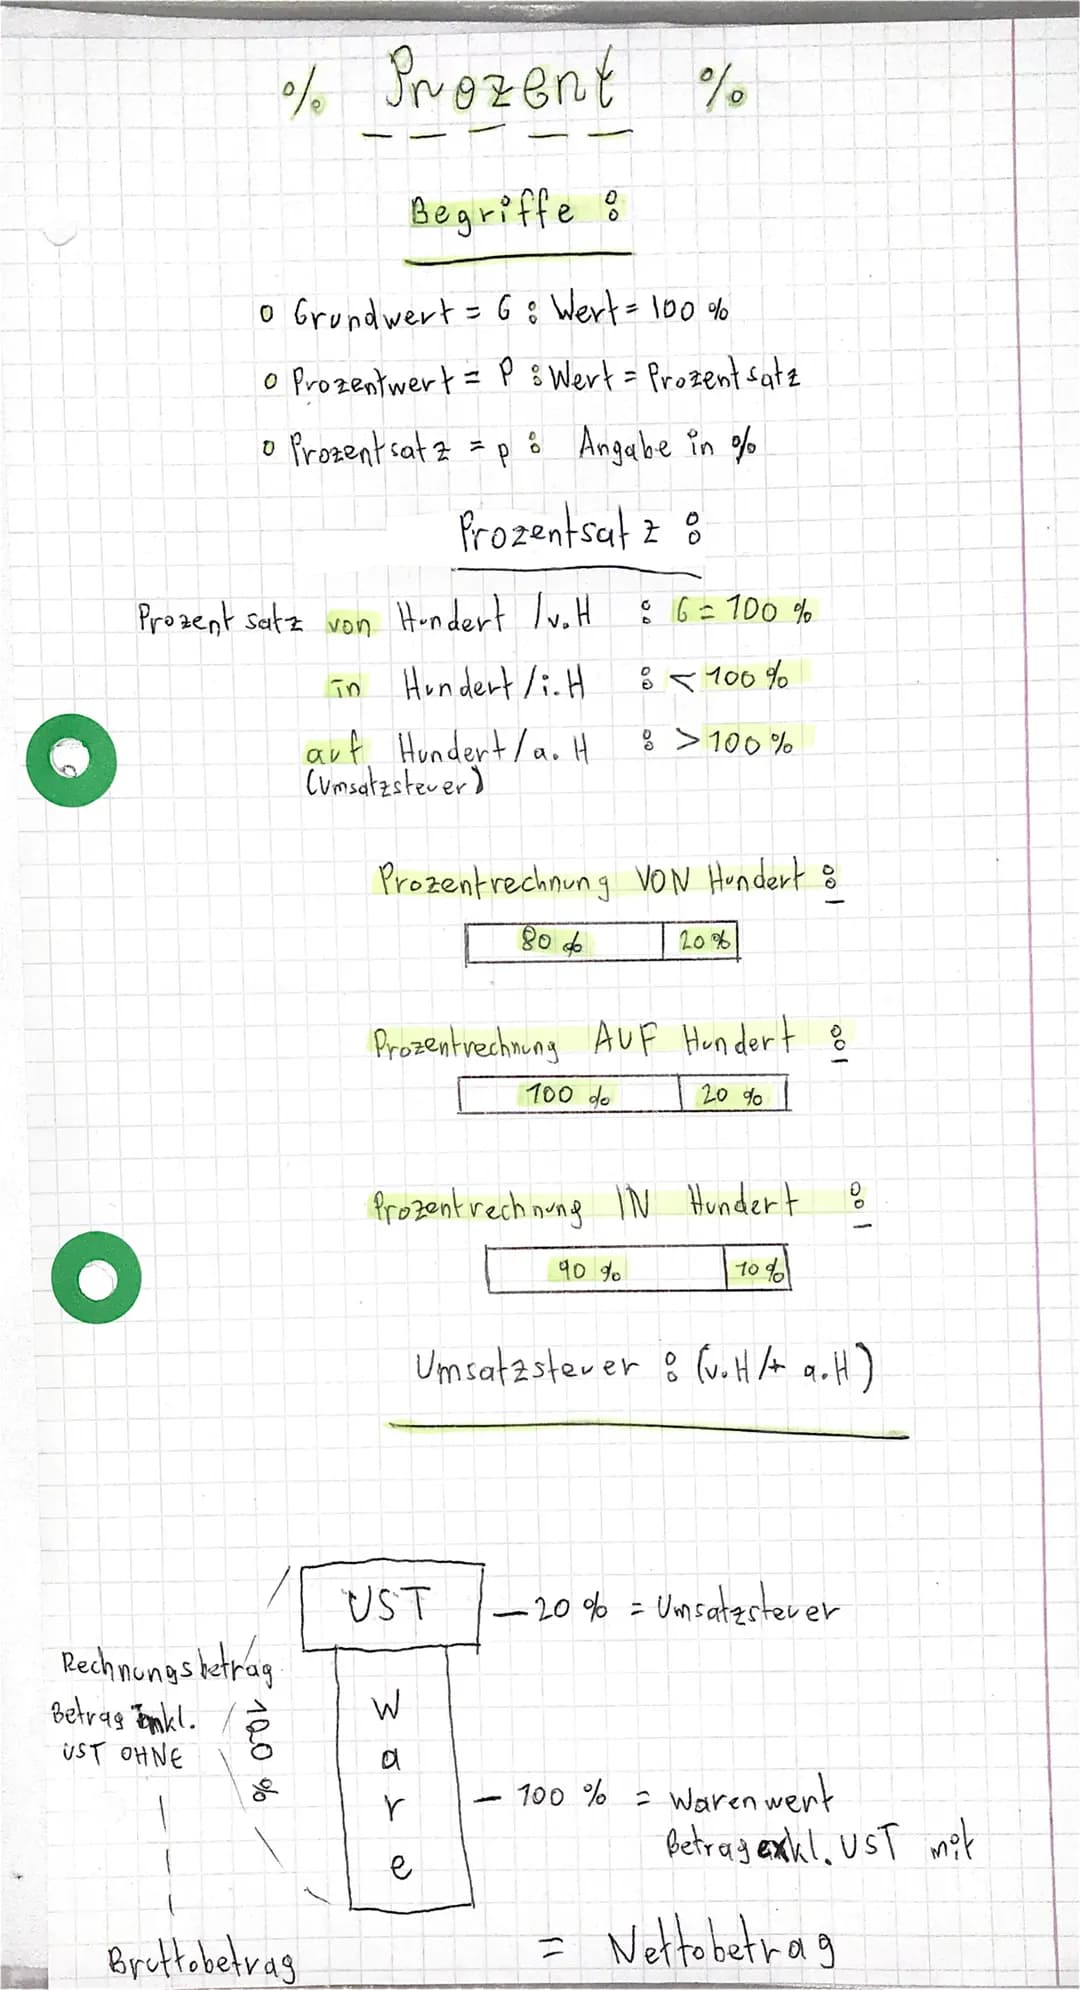 % Prozent %
Begriffe :
o Grundwert = G : Wert = 100 %
o Prozentwert = P : Wert = Prozentsatz
o Prozentsatz = p : Angabe in %
Prozentsatz :
Prozentsatz von Hundert /v.H : G = 100 %
in Hundert /i.H : < 100 %
auf Hundert /a.H : > 100 %
(Umsatzsteuer)
Prozentrechnung VON Hundert :
80 % 20 %
Prozentrechnung AUF Hundert :
100 % 20 %
Prozentrechnung IN Hundert :
90 % 10 %
Umsatzsteuer : (v.H /+ a.H)
UST – 20 % = Umsatzsteuer
Rechnungsbetrag
Betrag Inkl.
UST OHNE
120 %
Ware
– 100 % = Warenwert
Betrag exkl. UST mit
Bruttobetrag
= Nettobetrag